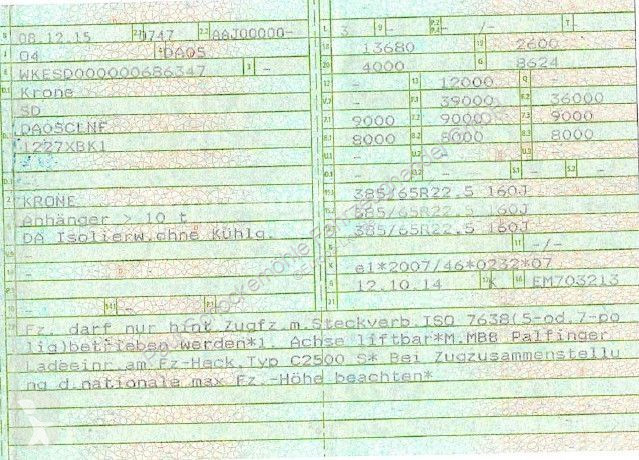 B 08.12.15 2.1 0747 2.2 AAJ00000-
J 04 4 DA05
E WKESD000000686347 3 -
D.1 Krone
SD
DA05CLNF
1227XBK1
-
2 KRONE
5 Anhänger > 10 t
DA Isolierw.ohne Kühlg.
-
-
L 3 9 - P.2 P.4 - /- T -
18 13680 19 2600
20 4000 G 8624
12 - 13 12000 Q -
V.7 - F.1 39000 F.2 36000
7.1 9000 7.2 9000 7.3 9000
8.1 8000 8.2 8000 8.3 8000
U.1 - U.2 - U.3 -
- S.1 - S.2 -
15.1 385/65R22.5 160J
15.2 385/65R22.5 160J
15.3 385/65R22.5 160J
R - 11 -/-
K e1*2007/46*0232*07
6 12.10.14 17 K 16 EM703213
21 -
10 - 14.1 - P.3 -
22 Fz. darf nur hint.Zugfz.m.Steckverb.ISO 7638(5-od.7-po
lig)betrieben werden*1. Achse liftbar*M.MBB Palfinger
Ladeeinr.am Fz-Heck,Typ C2500 S* Bei Zugzusammenstellu
ng d.nationale max Fz.-Höhe beachten*